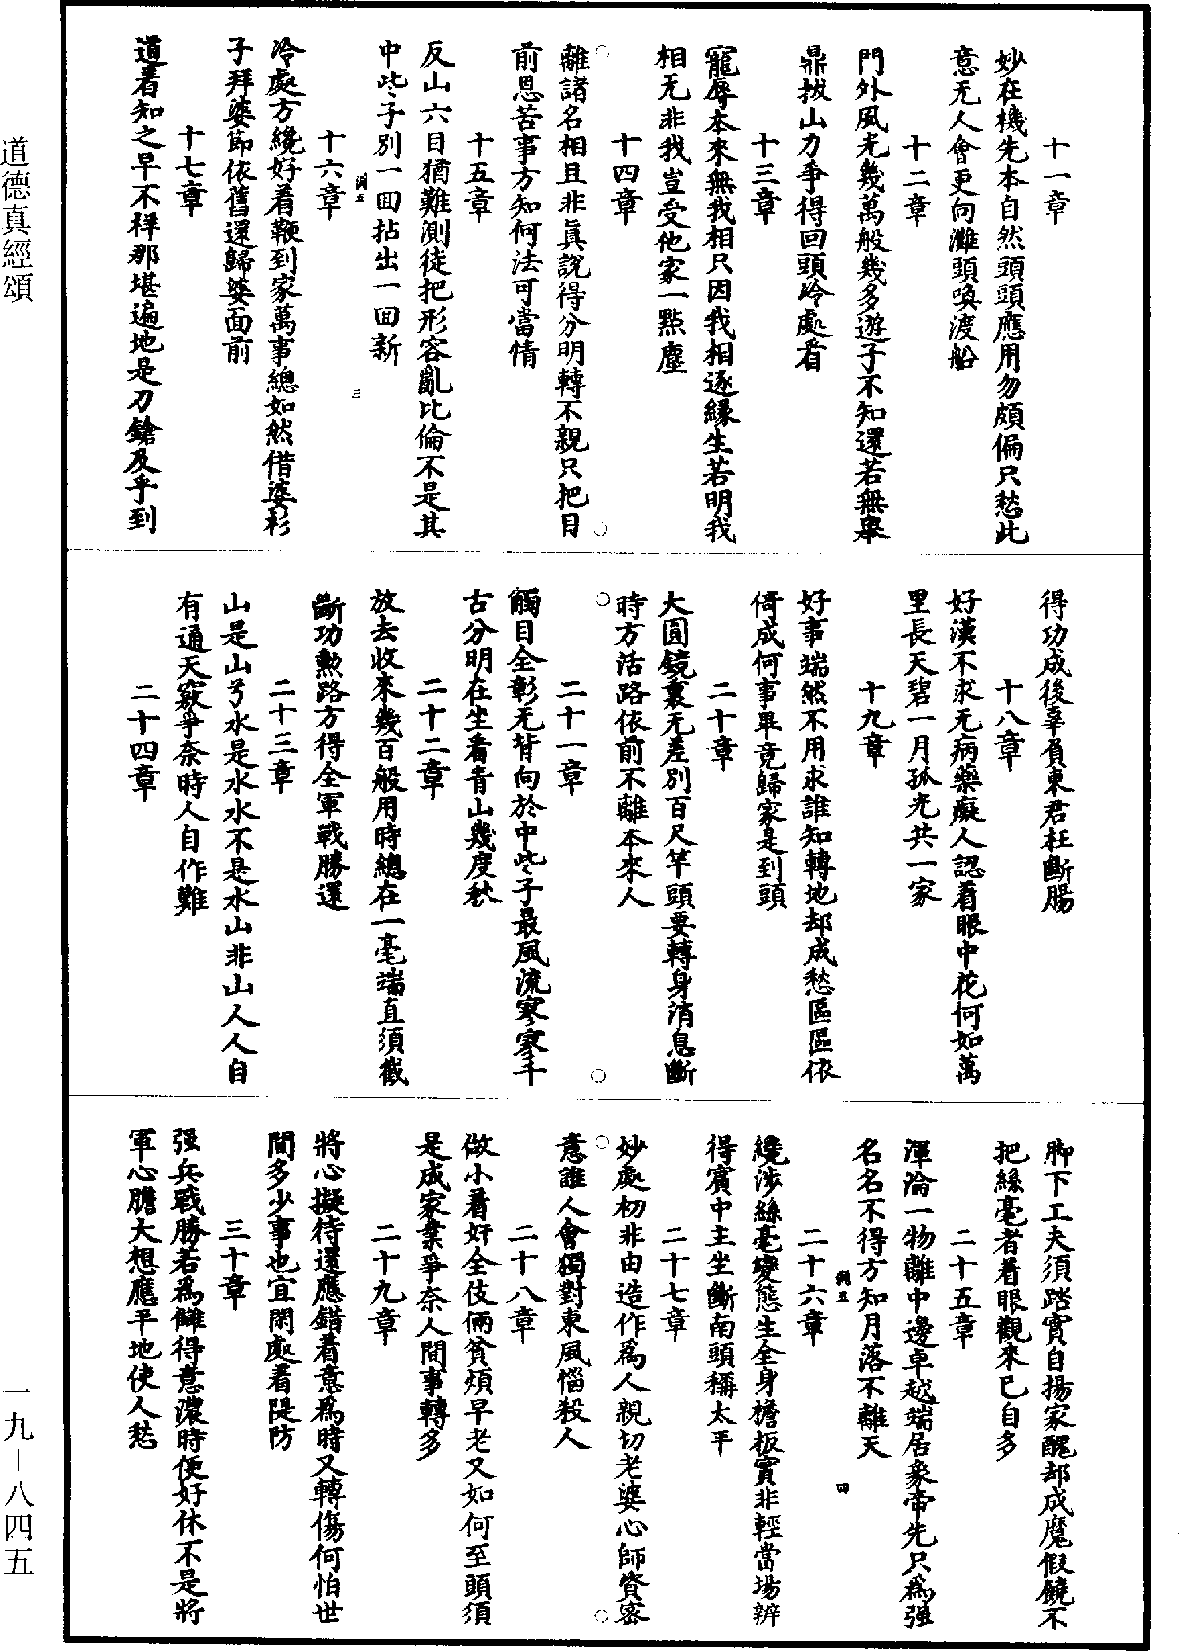 道德真經頌
十一章
妙在機先本自然頭頭應用勿頗偏只愁此
意无人會更向灘頭喚渡船
十二章
門外風光幾萬般幾多遊子不知還若無舉
鼎拔山力爭得回頭冷處看
十三章
寵辱本來無我相只因我相逐緣生若明我
相无非我豈受他家一點塵
十四章
離諸名相且非真說得分明轉不親只把目
前恩苦事方知何法可當情
十五章
反山六目猶難測徒把形容亂比倫不是其
中些子別一回拈出一回新
洞五
三
十六章
冷處方纔好着鞭到家萬事總如然借婆衫
子拜婆節依舊還歸婆面前
十七章
道着知之早不祥那堪遍地是刀鎗及乎到
得功成後辜負東君枉斷腸
十八章
好漢不求无病藥癡人認着眼中花何如萬
里長天碧一月孤光共一家
十九章
好事端然不用求誰知轉地却成愁區區依
倚成何事畢竟歸家是到頭
二十章
大圓鏡裏无差別百尺竿頭要轉身消息斷
時方活路依前不離本來人
二十一章
觸目全彰无背向於中些子最風流寥寥千
古分明在坐看青山幾度秋
二十二章
放去收來幾百般用時總在一毫端直須截
斷功勲路方得全軍戰勝還
二十三章
山是山兮水是水水不是水山非山人人自
有通天竅爭奈時人自作難
二十四章
脚下工夫須踏實自揚家醜却成魔假饒不
把絲毫者着眼觀來已自多
二十五章
渾淪一物離中邊卓越端居象帝先只為强
名名不得方知月落不離天
洞五
四
二十六章
纔涉絲毫變態生全身擔板實非輕當場辨
得賓中主坐斷南頭稱太平
二十七章
妙處初非由造作為人親切老婆心師資密
意誰人會獨對東風惱殺人
二十八章
做小着奸全伎倆貧煩早老又如何至頭須
是成家業爭奈人間事轉多
二十九章
將心擬待還應錯着意為時又轉傷何怕世
間多少事也宜閑處着隄防
三十章
强兵戰勝若為讎得意濃時便好休不是將
軍心膽大想應平地使人愁
一九—八四五